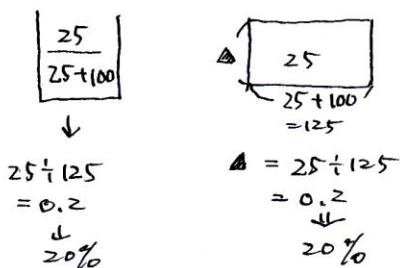 25
25+100
↓
25÷125
=0.2
↓
20%
▲
25
25+100
=125
▲ = 25÷125
=0.2
⇓
20%